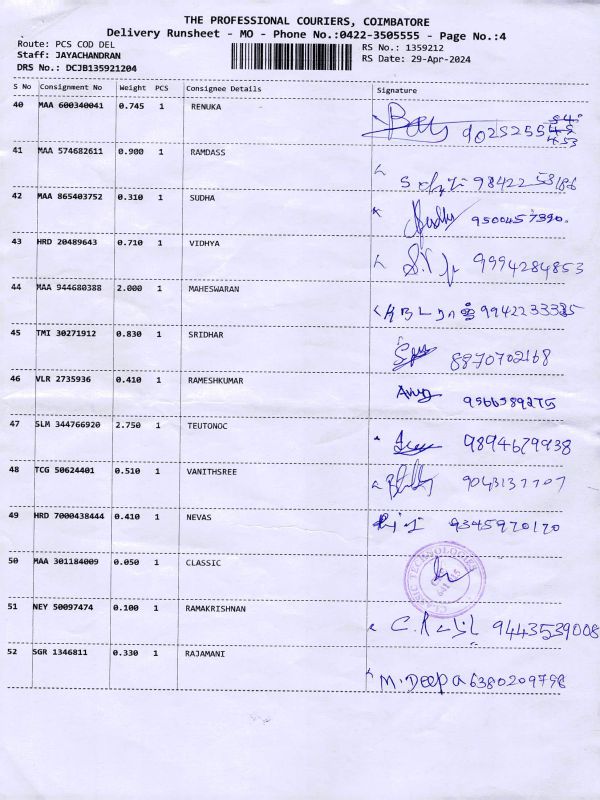 THE PROFESSIONAL COURIERS, COIMBATORE
Delivery Runsheet - MO - Phone No.:0422-3505555 - Page No.:4
Route: PCS COD DEL
RS No.: 1359212
Staff: JAYACHANDRAN
RS Date: 29-Apr-2024
DRS No.: DCJB135921204
S No Consignment No Weight PCS Consignee Details Signature
40 MAA 600340041 0.745 1 RENUKA
41 MAA 574682611 0.900 1 RAMDASS
42 MAA 865403752 0.310 1 SUDHA 9500457390.
43 HRD 20489643 0.710 1 VIDHYA 9994284853
44 MAA 944680388 2.000 1 MAHESWARAN
45 TMI 30271912 0.830 1 SRIDHAR 8870702168
46 VLR 2735936 0.410 1 RAMESHKUMAR 9566589275
47 SLM 344766920 2.750 1 TEUTONOC 9894679938
48 TCG 50624401 0.510 1 VANITHSREE 9043137707
49 HRD 7000438444 0.410 1 NEVAS 9345970170
50 MAA 301184009 0.050 1 CLASSIC CLASSIC TECHNOLOGIES
51 NEY 50097474 0.100 1 RAMAKRISHNAN 9443539008
52 SGR 1346811 0.330 1 RAJAMANI M.Deepa 6380209798